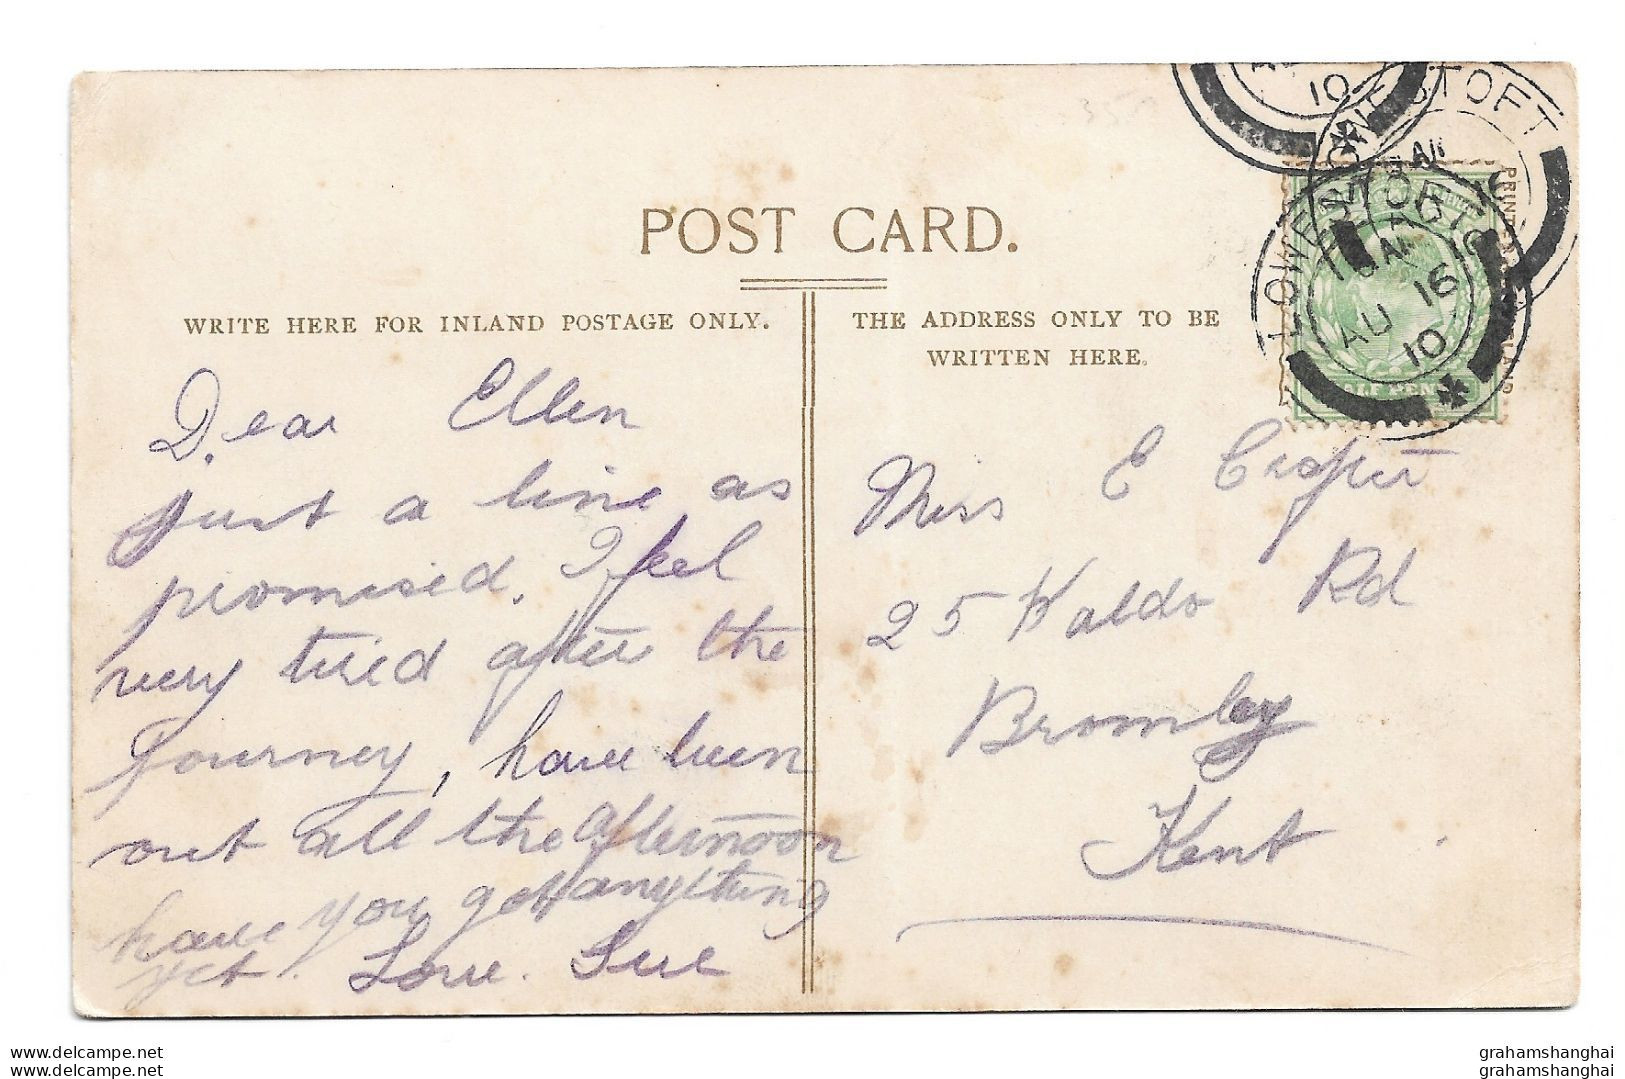 POST CARD.
WRITE HERE FOR INLAND POSTAGE ONLY.
THE ADDRESS ONLY TO BE
WRITTEN HERE.
Dear Ellen
just a line as
promised. I feel
very tired after the
journey, have been
out all the afternoon
have you got anything
yet. Love. Sue
Miss E
25 Waldo Rd
Bromley
Kent
LOWESTOFT
AU 16
10
LOWESTOFT
10
HALF PENNY
grahamshanghai
delcampe.net
grahamshanghai
delcampe.net